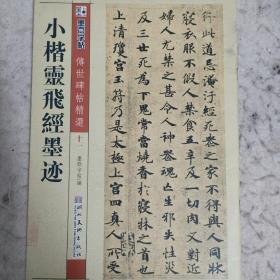 行此道忌淹汙經死喪之家不得與人同牀
寢衣服不假人禁食五辛及一切肉又對近
婦人尤禁之甚令人神喪魂亡生邪失性災
及三世死為下鬼常當燒香於寢牀之首也
上清瓊宮玉符乃是太極上宮四真人所受
墨点字帖
傳世碑帖精選
小楷靈飛經墨迹
湖北美術出版社